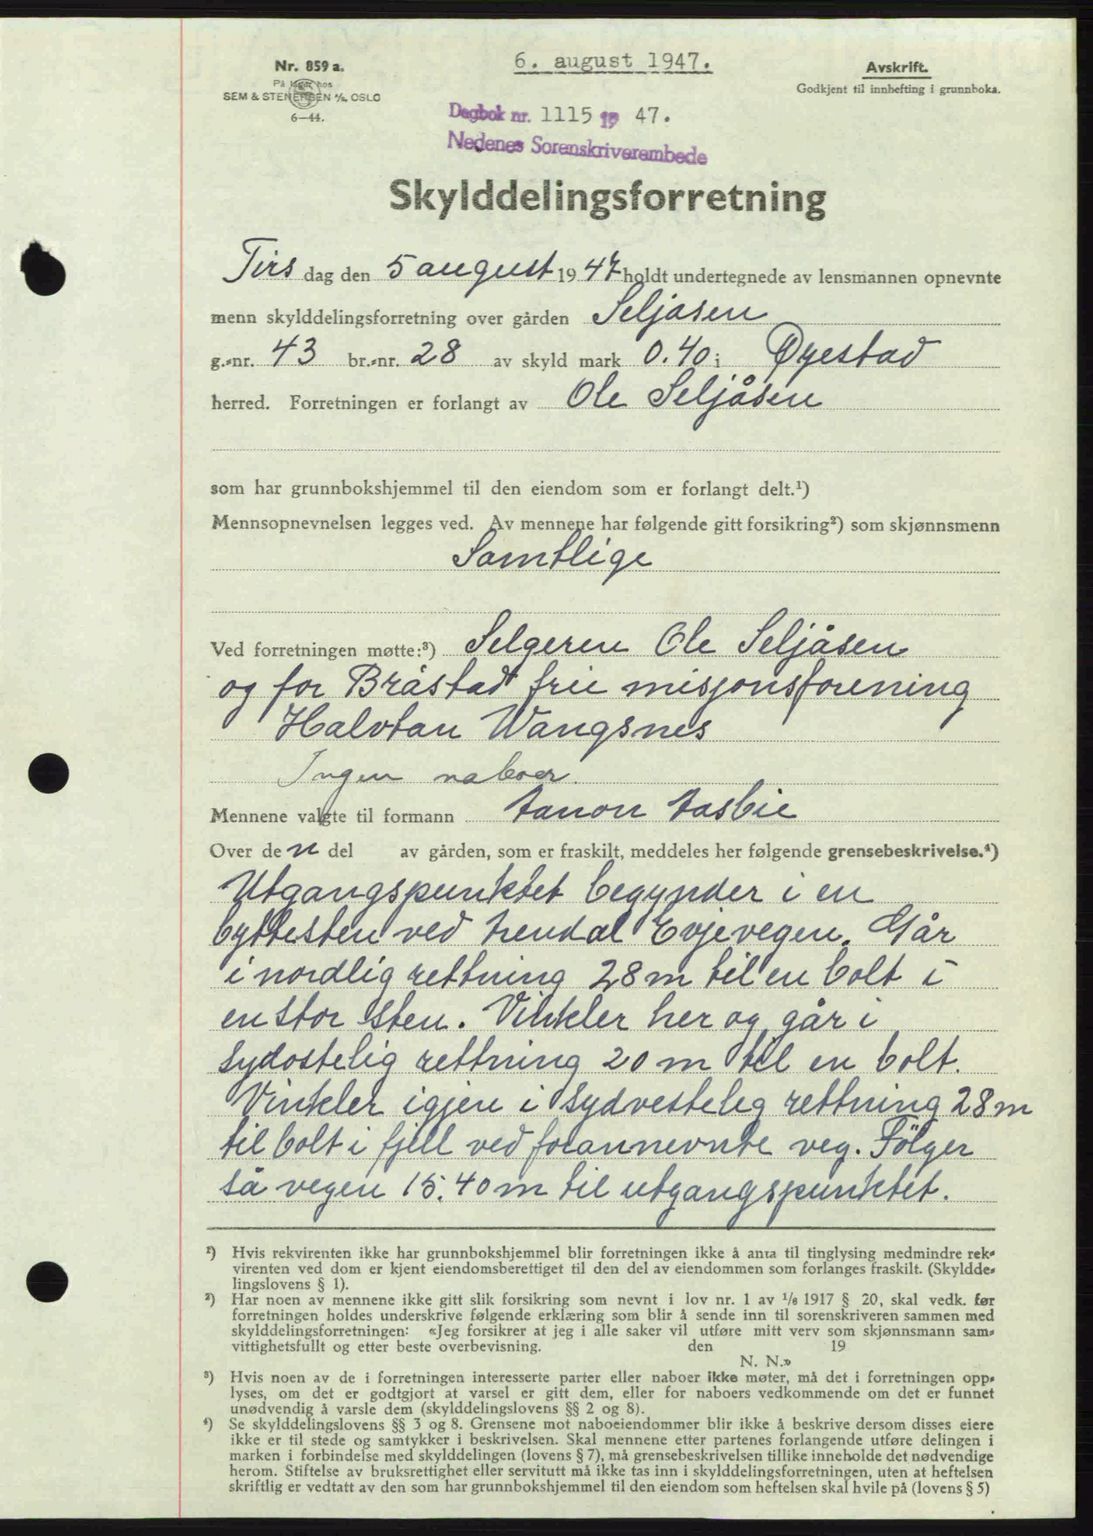 Nr. 859 a.
På lager hos
SEM & STENERSEN A/S, OSLO
6-44.
6. august 1947.
Avskrift.
Godkjent til innhefting i grunnboka.
Dagbok nr. 1115 19 47.
Nedenes Sorenskriverembede
Skylddelingsforretning
Tirs dag den 5 august 1947 holdt undertegnede av lensmannen opnevnte
menn skylddelingsforretning over gården Seljåsen
g.-nr. 43 br.-nr. 28 av skyld mark 0.40 i Øyestad
herred. Forretningen er forlangt av Ole Seljåsen
som har grunnbokshjemmel til den eiendom som er forlangt delt.¹)
Mennsopnevnelsen legges ved. Av mennene har følgende gitt forsikring²) som skjønnsmenn
Samtlige
Ved forretningen møtte:³) Selgeren Ole Seljåsen
og for Bråstad frie misjonsforening
Halvtan Wangsnes
Ingen naboer.
Mennene valgte til formann Aanon Aasbie
Over den del av gården, som er fraskilt, meddeles her følgende grensebeskrivelse.⁴)
Utgangspunktet begynder i en
byttesten ved Arendal Evjevegen. Går
i nordlig rettning 28 m til en bolt i
en stor sten. Vinkler her og går i
sydostelig rettning 20 m til en bolt.
Vinkler igjen i sydvestelig rettning 28 m
til bolt i fjell ved forannevnte veg. Følger
så vegen 15.40 m til utgangspunktet.
¹) Hvis rekvirenten ikke har grunnbokshjemmel blir forretningen ikke å anta til tinglysing medmindre rek-
virenten ved dom er kjent eiendomsberettiget til den del av eiendommen som forlanges fraskilt. (Skyldde-
lingslovens § 1).
²) Har noen av mennene ikke gitt slik forsikring som nevnt i lov nr. 1 av 1/6 1917 § 20, skal vedk. før
forretningen holdes underskrive følgende erklæring som blir å sende inn til sorenskriveren sammen med
skylddelingsforretningen: «Jeg forsikrer at jeg i alle saker vil utføre mitt verv som skjønnsmann sam-
vittighetsfullt og etter beste overbevisning. den 19
N. N.»
³) Hvis noen av de i forretningen interesserte parter eller naboer ikke møter, må det i forretningen opp-
lyses, om det er godtgjort at varsel er gitt dem, eller for naboers vedkommende om det er funnet
unødvendig å varsle dem (skylddelingslovens §§ 2 og 8).
⁴) Se skylddelingslovens §§ 3 og 8. Grensene mot naboeiendommer blir ikke å beskrive dersom disses eiere
ikke er til stede og samtykker i beskrivelsen. Skal mennene etter partenes forlangende utføre delingen i
marken i forbindelse med skylddelingen (lovens § 7), må grensebeskrivelsen tillike inneholde det nødvendige
herom. Stiftelse av bruksrettighet eller servitutt må ikke tas inn i skylddelingsforretningen, uten at heftelsen
skriftlig er vedtatt av den som har grunnbokshjemmel til den eiendom som heftelsen skal hvile på (lovens § 5)